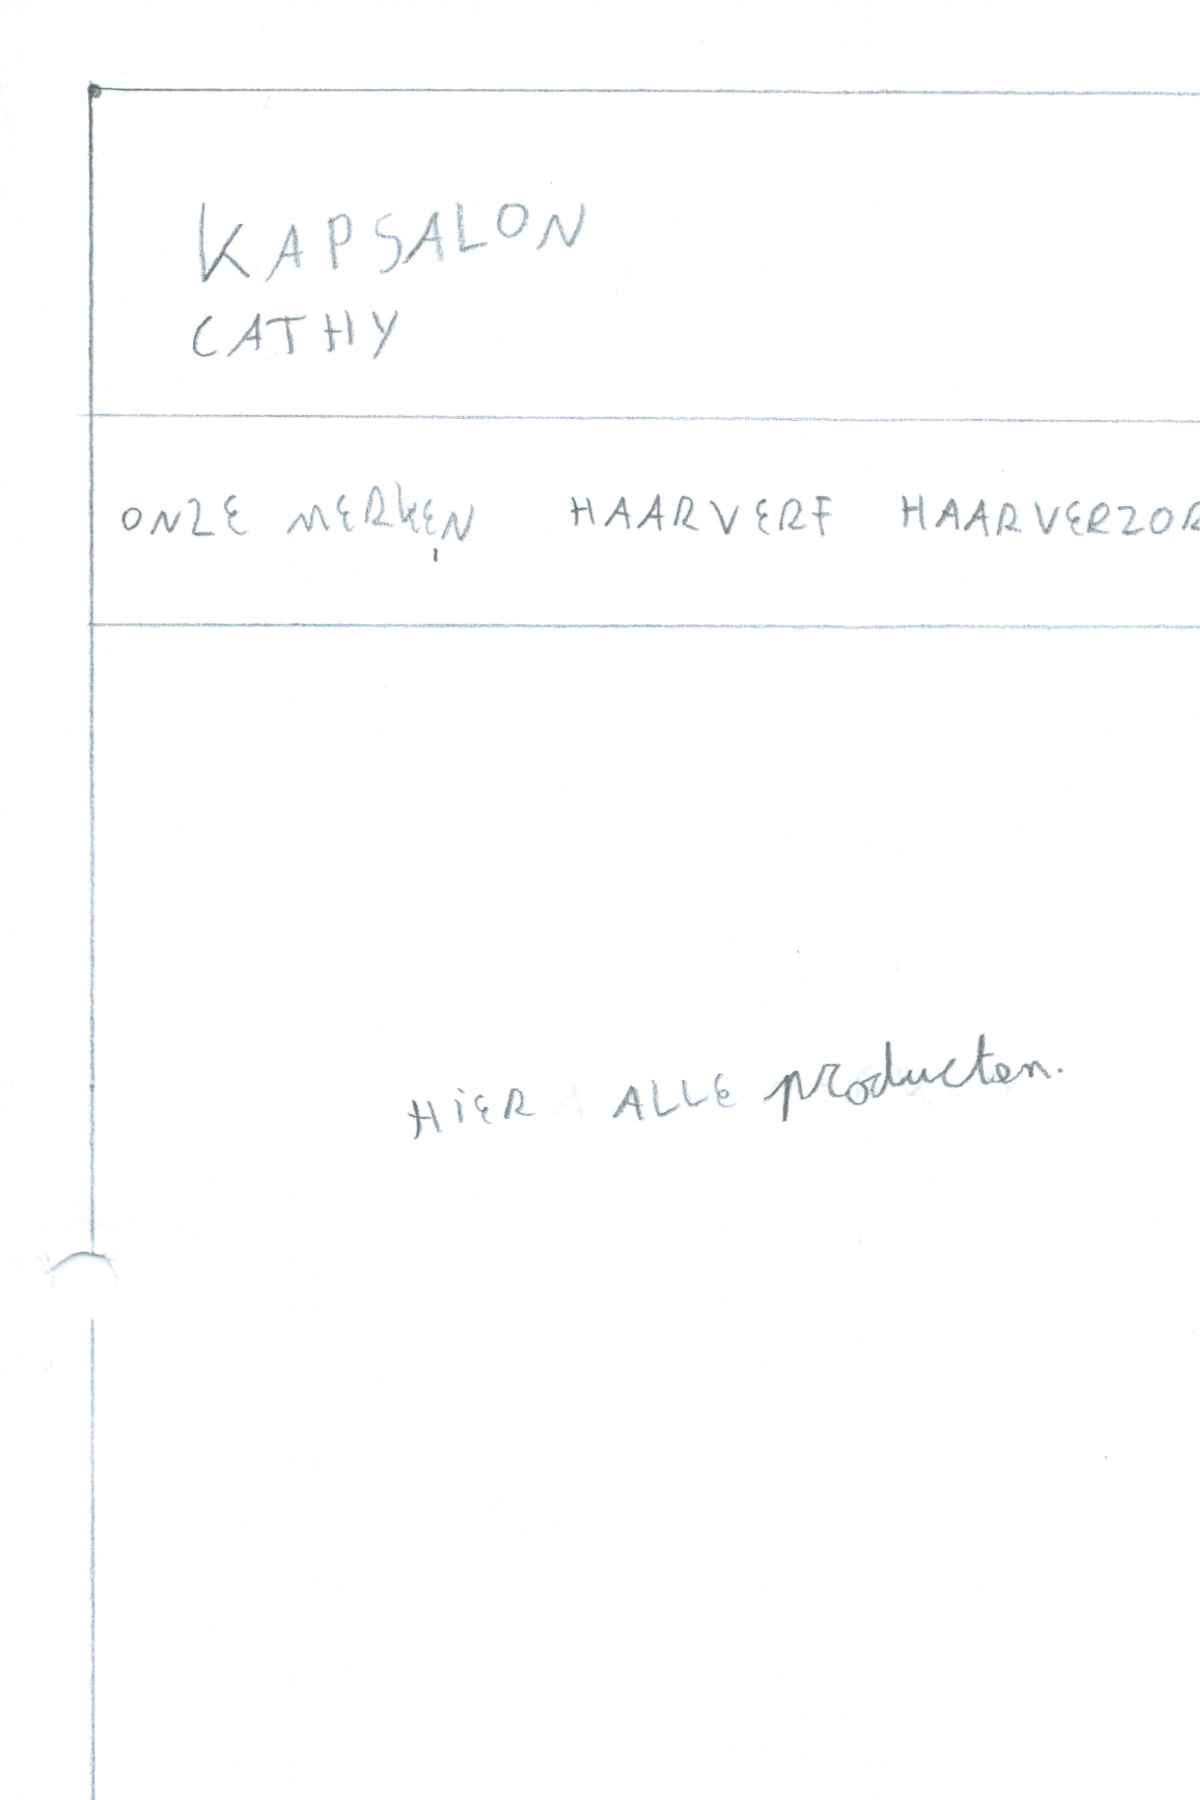 KAPSALON
CATHY
ONZE MERKEN HAARVERF HAARVERZOR
HIER ALLE producten.